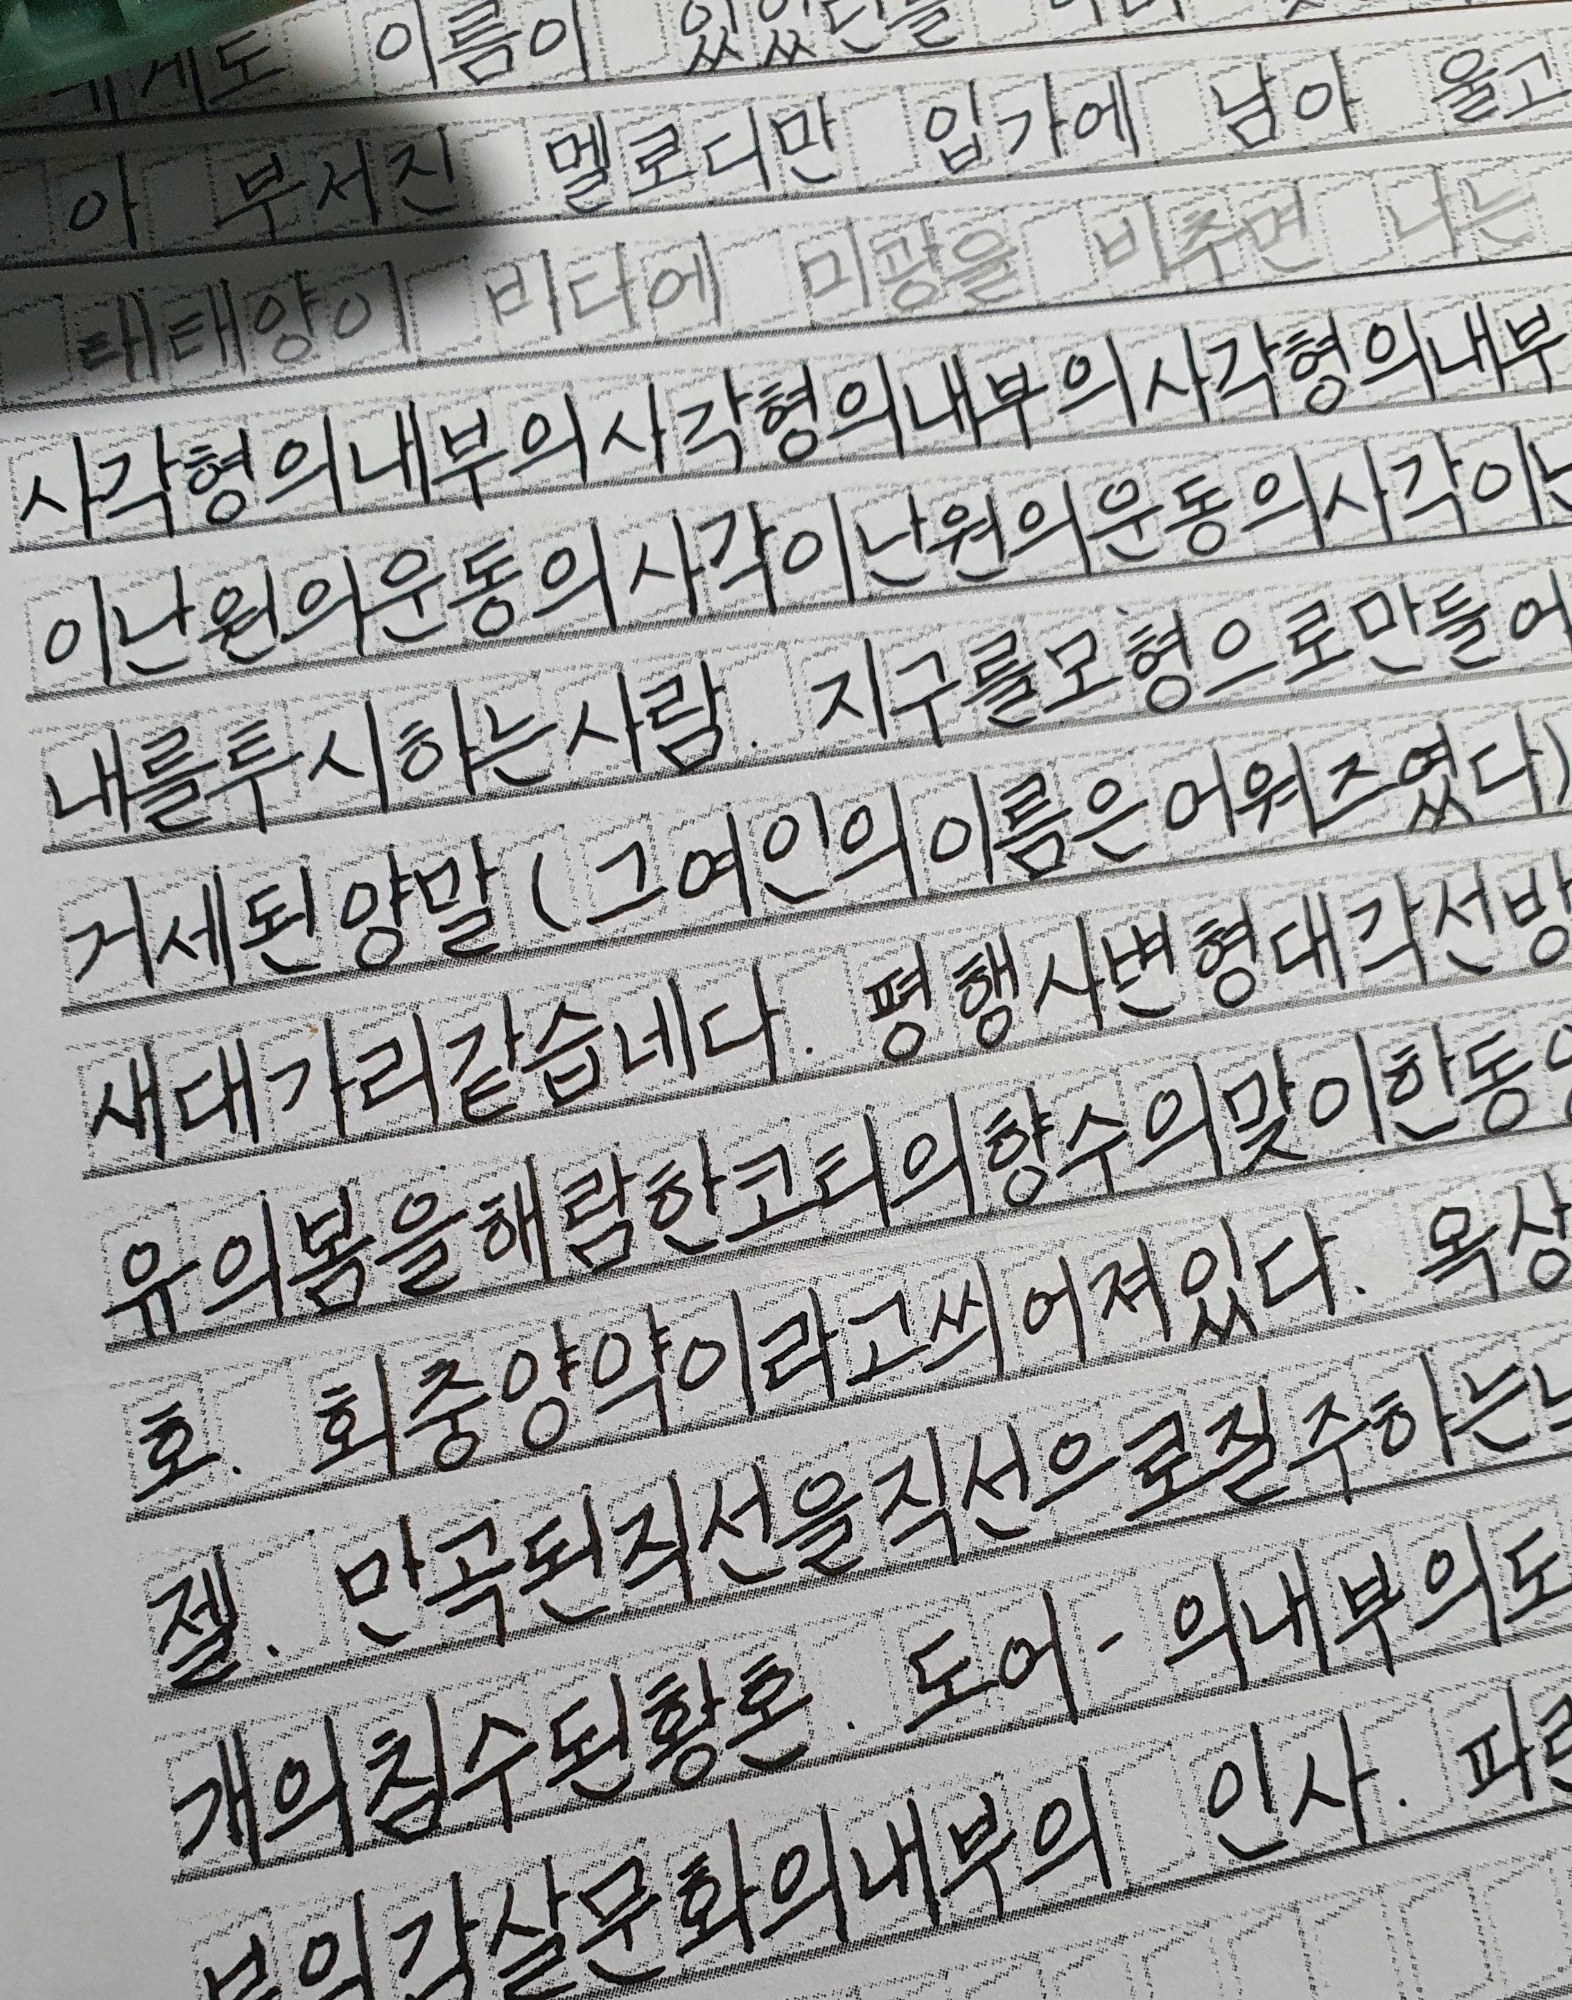 게도 이름이 있었던들
아 부서진 멜로디만 입가에 남아 울고
태태양이 바다에 미광을 비추면 나는
사각형의내부의사각형의내부의사각형의내부
이난원의운동의사각이난원의운동의사각이난
내를투시하는사람. 지구를모형으로만들어
거세된양말(그여인의이름은어워즈였다)
새대가리같습네다. 평행사변형대각선방
유의봄을해람한코티의향수의맞이한동양
호. 회중양약이라고씌어져있다. 옥상
젤. 만곡된직선을직선으로질주하는
개의침수된황혼. 도어-의내부의도
부의각살문화의내부의 인사. 파란